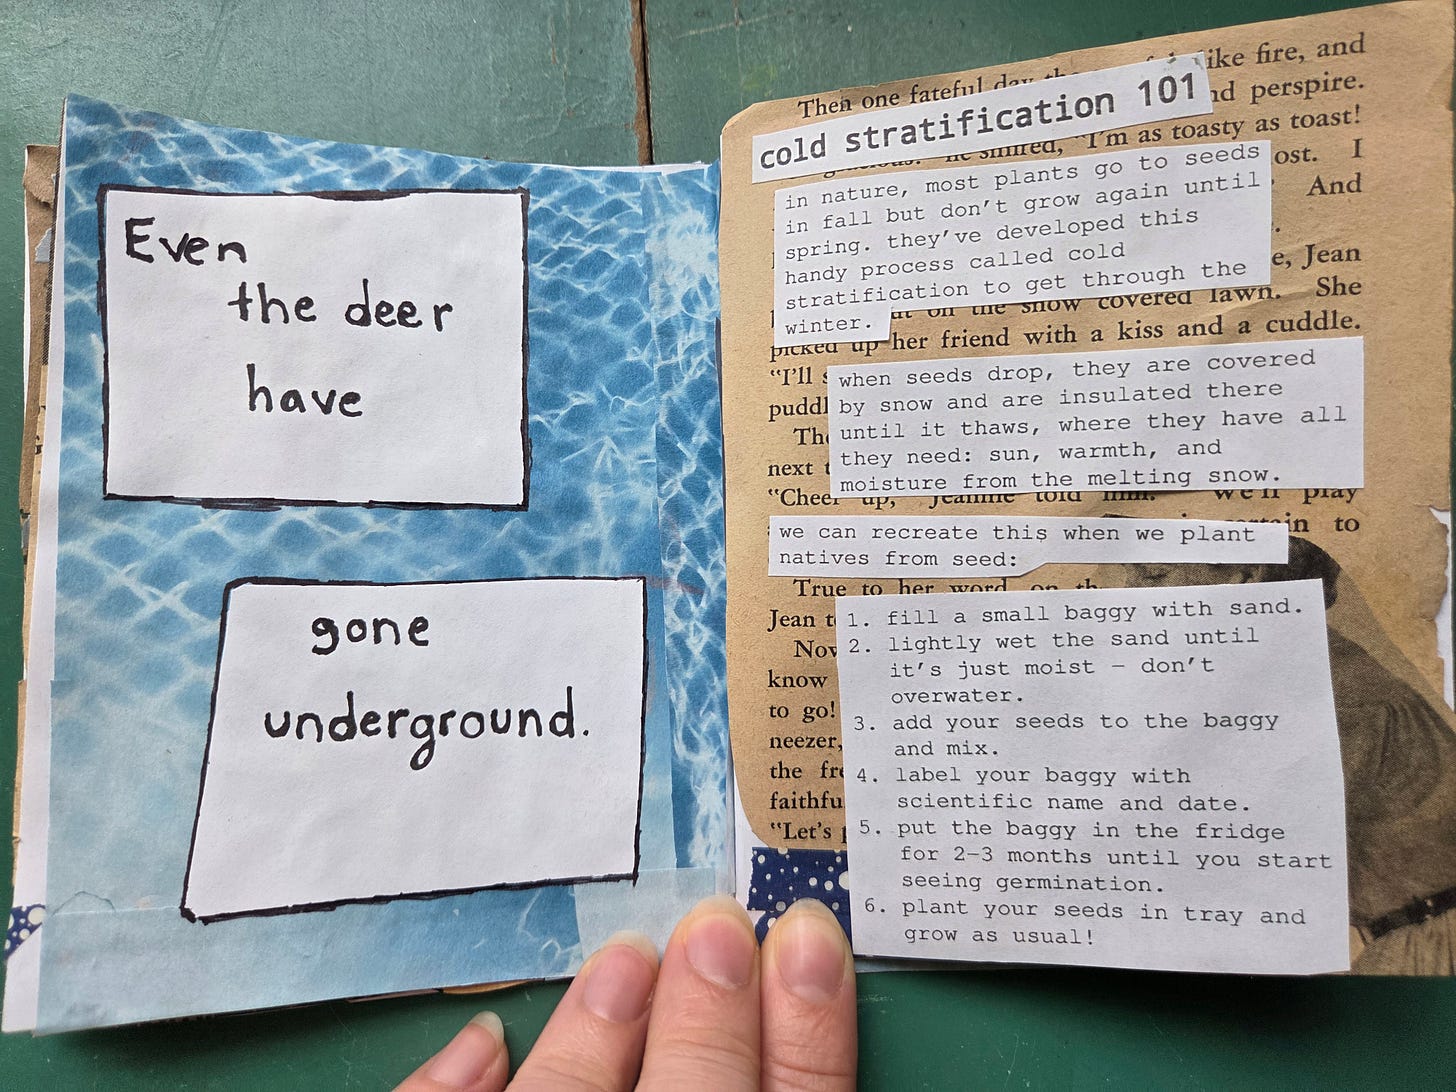 Even
the deer
have
gone
underground.
Then one fateful day the like fire, and
cold stratification 101
nd perspire.
"I'm as toasty as toast!
in nature, most plants go to seeds
ost. I
in fall but don't grow again until
And
spring. they've developed this
handy process called cold
e, Jean
stratification to get through the
on the snow covered lawn. She
winter.
picked up her friend with a kiss and a cuddle.
"I'll
when seeds drop, they are covered
puddl
by snow and are insulated there
until it thaws, where they have all
next
they need: sun, warmth, and
moisture from the melting snow.
"Cheer up," Jeannie told him. "We'll play
we can recreate this when we plant
in to
natives from seed:
True to her word, on th
Jean t
1. fill a small baggy with sand.
2. lightly wet the sand until
Nov
it's just moist – don't
know
overwater.
to go!
3. add your seeds to the baggy
neezer,
and mix.
the fre
4. label your baggy with
faithfu
scientific name and date.
"Let's p
5. put the baggy in the fridge
for 2–3 months until you start
seeing germination.
6. plant your seeds in tray and
grow as usual!